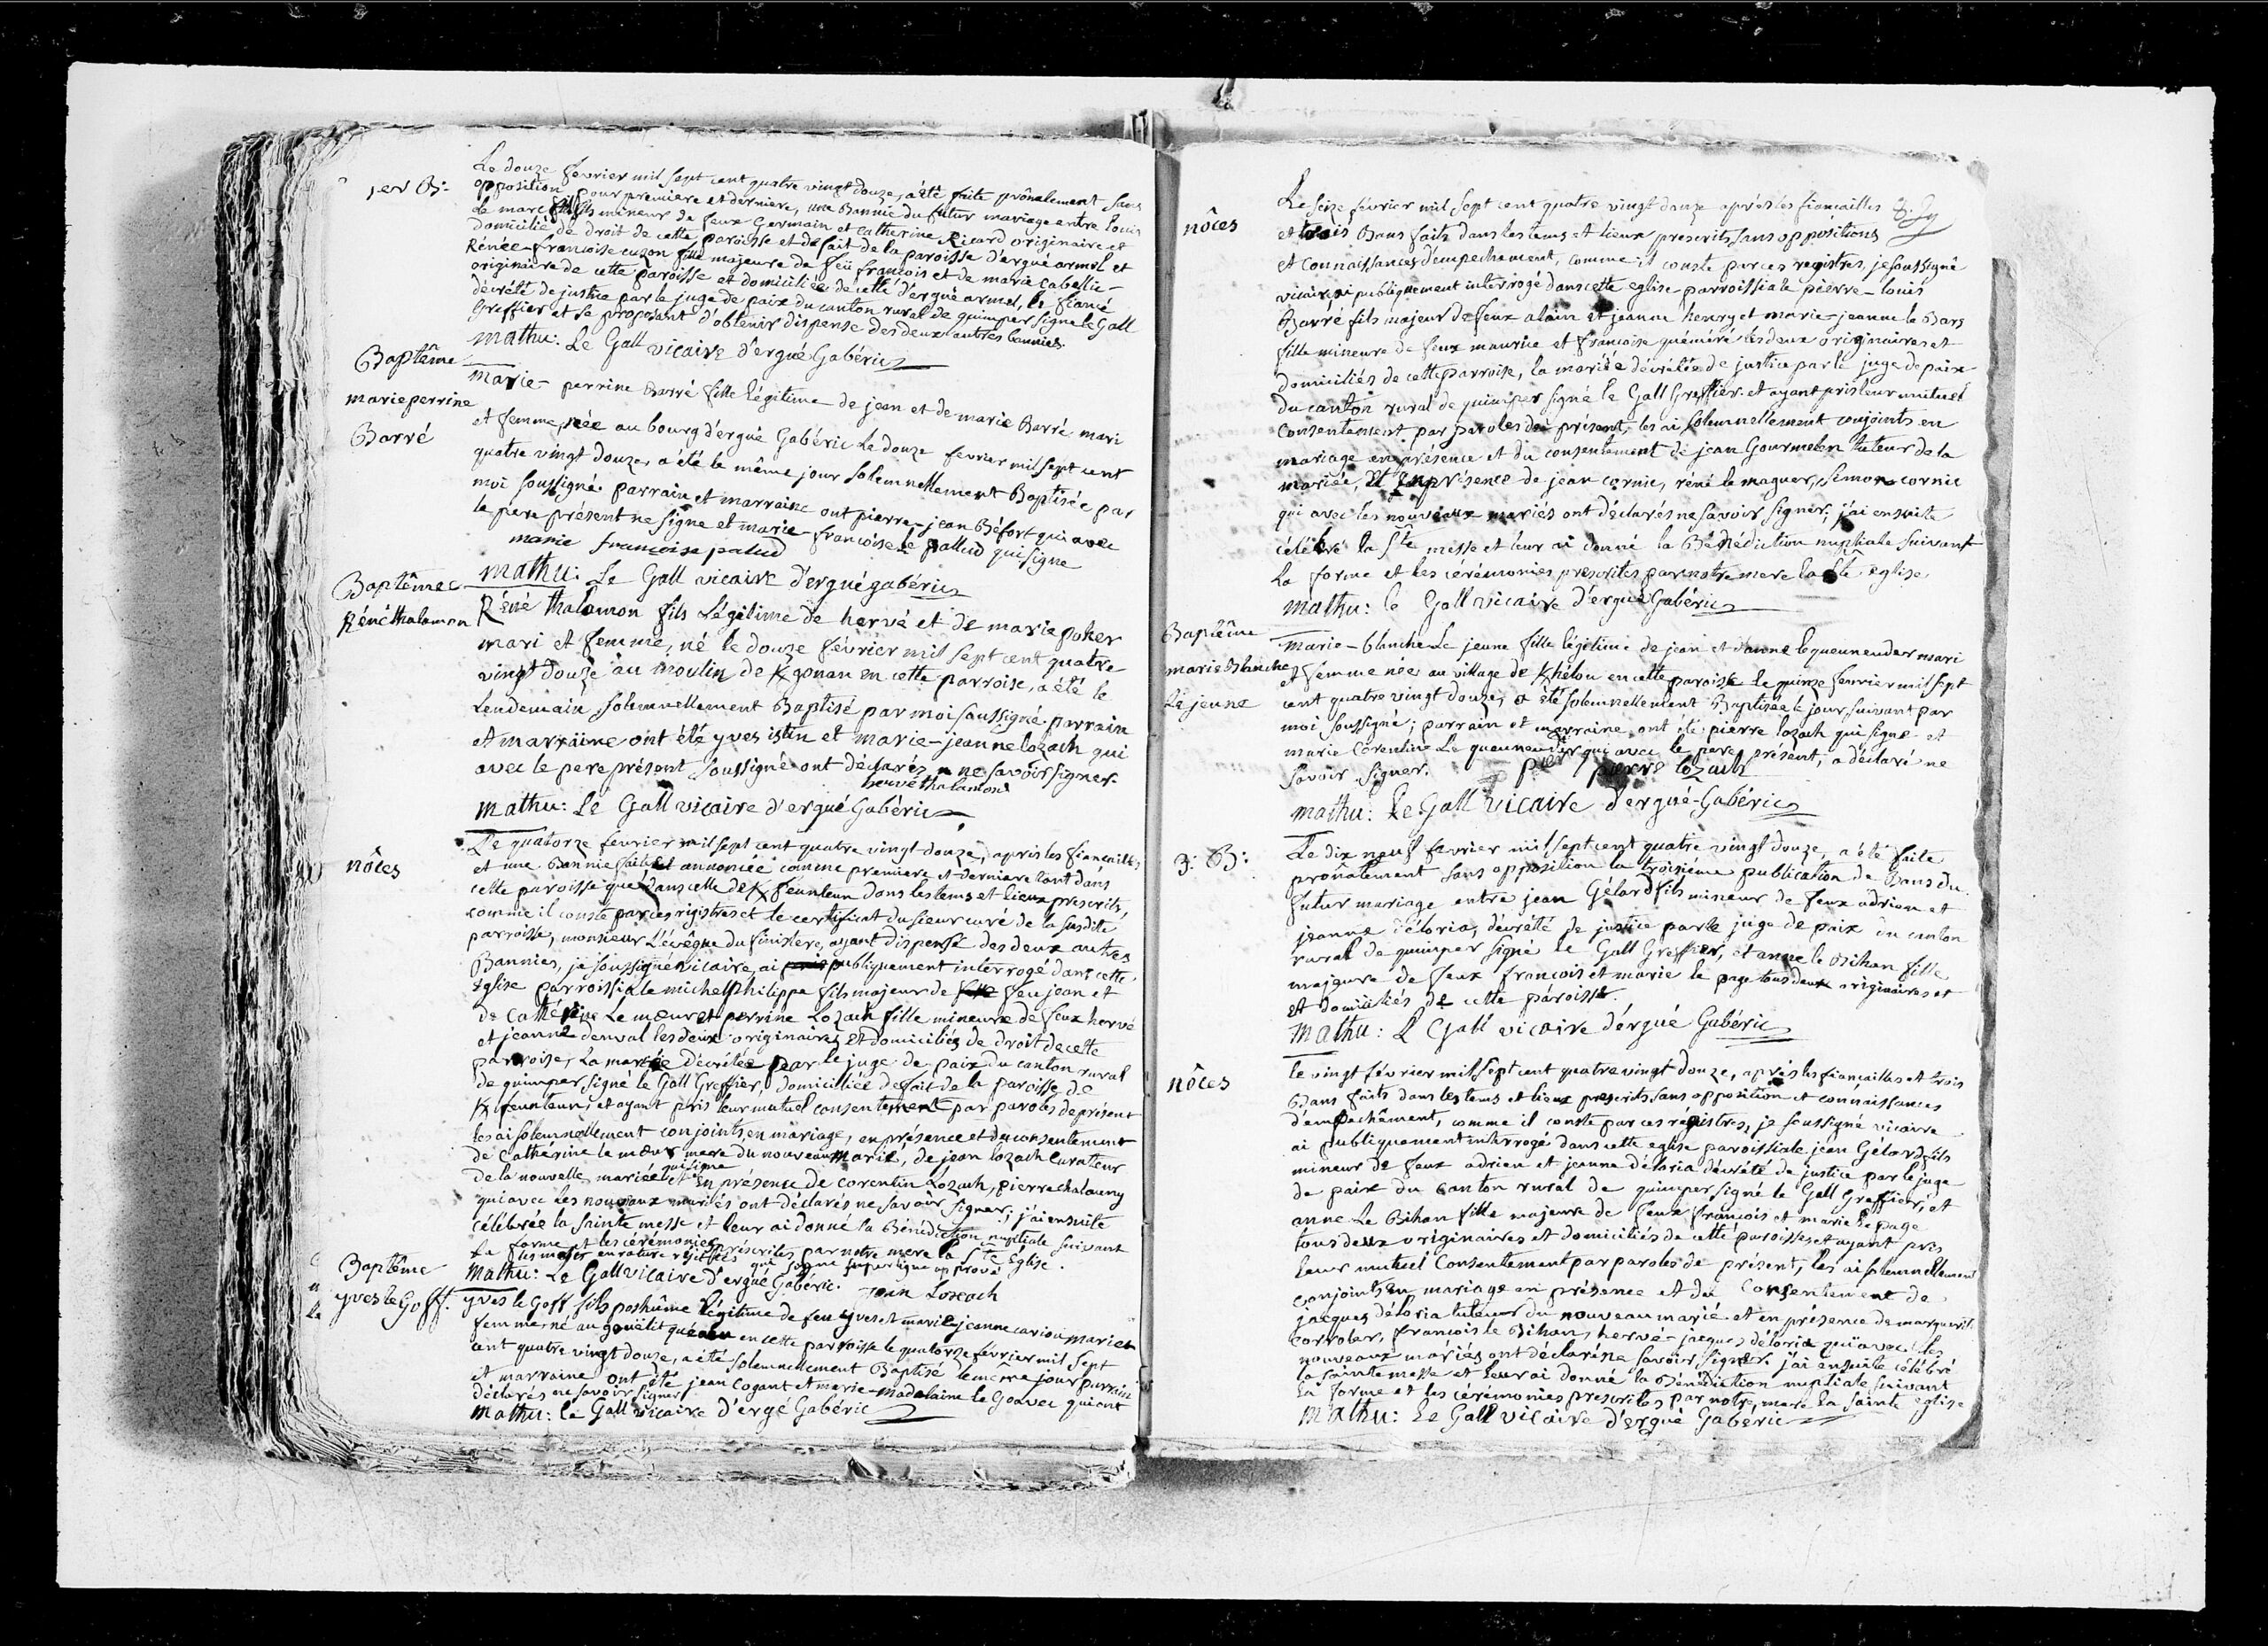 1er B:
Le douze fevrier mil sept cent quatre vingt douze, a été faite prônalement sans
opposition pour premiere et derniere, une Bannie du futur mariage entre louis
le marc fils mineur de feux Germain et Catherine Ricard originaire et
domicilié de droit de cette paroisse et de fait de la paroisse d'ergué armel et
Rénée-francoise cuzon fille majeure de feu francois et de marie cabellic-
originaire de cette paroisse et domiciliée de celle d'ergué armel, le fiancé
décrété de justice par le juge de paix du canton rural de quimper signé le Gall
Greffier et se proposant d'obtenir dispense des deux autres bannies.
mathu: Le Gall vicaire d'ergué Gabéric
Baptême
marie perrine
Barré
marie-perrine Barré fille légitime de jean et de marie Barré mari
et femme, née au bourg d'ergué Gabéric Le douze fevrier mil sept cent
quatre vingt douze, a été le même jour solemnellement Baptisée par
moi soussigné. parrain et marraine ont pierre-jean Béfort qui avec
le pere présent ne signe et marie-francoise le pallud qui signe
marie francoise palud
mathu: Le Gall vicaire d'ergué gabéric
Baptême
Réné thalamon
Réné thalamon fils Légitime de hervé et de marie poher
mari et femme, né le douze février mil sept cent quatre-
vingt douze au moulin de K/gonan en cette parroise, a été le
Lendemain solemnellement Baptisé par moi soussigné. parrain
et marraine ont été yves istin et marie-jeanne lozach qui
avec le pere présent soussigné ont déclarés ne savoir signer.
hervé thalamon
mathu: Le Gall vicaire d'ergué Gabéric
nôces
Le quatorze fevrier mil sept cent quatre vingt douze, apris les fiancailles
et une Bannie faite et annoncée comme premiere et derniere tant dans
cette paroisse que dans celle de K/feunteun dans les tems et lieux prescrits,
comme il conste par ces régistres et le certificat du sieur curé de la susdite
parroisse, monsieur L'évêque du finistere, ayant dispensé des deux autres
Bannies, je soussigné vicaire, ai publiquement interrogé dans cette
Eglise parroissiale michel philippe fils majeur de feu jean et
de Cathérine Le mœur et perrine Lozach fille mineure de feux hervé
et jeanne denval les deux originaires et domiciliés de droit de cette
parroise, la mariée décrétée par le juge de paix du canton rural
de quimper, signé le Gall Greffier, domiciliée de fait de la paroisse de
K/feunteun; et ayant pris leur mutuel consentement par paroles de présent
les ai solemnellement conjoints en mariage, en présence et du consentement
de Cathérine le mœur mere du nouveau marié, de jean lozach curateur
de la nouvelle mariée qui signe et en présence de corentin Lozach, pierre chalouny
qui avec les nouveaux mariés ont déclarés ne savoir signer; j'ai ensuite
célébrée la Sainte messe et leur ai donné la Bénédiction nuptiale suivant
la forme et les cérémonies préscrites par notre mere la Ste Eglise.
les mots en rature rejettés qui signe interligne approuvé
mathu: Le Gall vicaire d'ergué Gabéric. Jean Lozeach
Baptême
yves le Goff.
yves le Goff fils posthûme légitime de feu yves et marie jeanne cariou mari et
femme, né au gouëlit en cette parroisse le quatorze février mil sept
cent quatre vingt douze, a été solemnellement Baptisé le même jour parrain
et marraine ont été jean Cogant et marie-madelaine le Goavec qui ont
déclarés ne savoir signer
mathu: le Gall vicaire d'ergé Gabéric
nôces
Le seize février mil sept cent quatre vingt douze après les fiancailles
et trois Bans faits dans les tems et lieux prescrits, sans oppositions
et connaissances d'empechement, comme il conste par ces registres, je soussigné
vicaire, ai publiquement interrogé dans cette eglise parroissiale pierre-louis
Barré fils majeur de feux alain et jeanne henry et marie-jeanne le Bars
fille mineure de feux maurice et francoise quéméré les deux originaires et
domiciliés de cette parroise, la mariée décrétée de justice par le juge de paix
du canton rural de quimper signé le Gall Greffier. et ayant pris leur mutuel
consentement par paroles de présent, les ai solemnellement conjoints en
mariage en présence et du consentement de jean Gourmelen tuteur de la
mariée, et en présence de jean cornic, réné le maguer, simon cornic
qui avec les nouveaux mariés ont déclarés ne savoir signer; j'ai ensuite
célébré la Ste messe et leur ai donné la Bénédiction nuptiale suivant
la forme et les cérémonies prescrites par notre mere la Ste eglise.
mathu: le Gall vicaire d'ergué Gabéric
Baptême
marie Blanche
Le jeune
marie-blanche Le jeune fille légitime de jean et d'anne le queuneuder mari
et femme née au village de K/hélou en cette paroisse le quinze fevrier mil sept
cent quatre vingt douze, a été solemnellement Baptisée le jour suivant par
moi soussigné; parrain et marraine ont été pierre lozach qui signe et
marie Corentine Le queuneuder qui avec le pere présent, a déclaré ne
savoir signer. pierre lozach
mathu: Le Gall vicaire d'ergué-Gabéric
3: B:
Le dix neuf fevrier mil sept cent quatre vingt douze, a été faite
prônalement sans opposition la troisième publication de Bans du
futur mariage entre jean Gélard fils mineur de feux adrien et
jeanne déloria, décrété de justice par le juge de paix du canton
rural de quimper signé le Gall Greffier, et anne le Bihan fille
majeure de feux francois et marie le page tous deux originaires et
et domiciliés de cette paroisse.
mathu: L Gall vicaire d'ergué Gabéric
nôces
le vingt février mil sept cent quatre vingt douze, après les fiancailles et trois
Bans faits dans les tems et lieux prescrits sans opposition et connaissances
d'empechêment, comme il conste par ces régistres, je soussigné vicaire
ai publiquement interrogé dans cette eglise paroissiale jean Gélard fils
mineur de feux adrien et jeanne déloria décrété de justice par le juge
de paix du canton rural de quimper signé le Gall Greffier, et
anne Le Bihan fille majeure de feux francois et marie le page
tous deux originaires et domiciliés de cette paroisse et ayant pris
leur mutuel Consentement par paroles de présent, les ai solemnellement
conjoints en mariage en présence et du consentement de
jacques déloria tuteur du nouveau marié et en présence de marguerit
corroler, francois le Bihan, hervé-jacques déloria qui avec les
nouveaux mariés ont déclaré ne savoir signer. j'ai ensuite célébré
la sainte messe et leur ai donné la Bénédiction nuptiale suivant
la forme et les cérémonies prescrites par notre mere la Sainte eglise
mathu: Le Gall vicaire d'ergué Gaberic